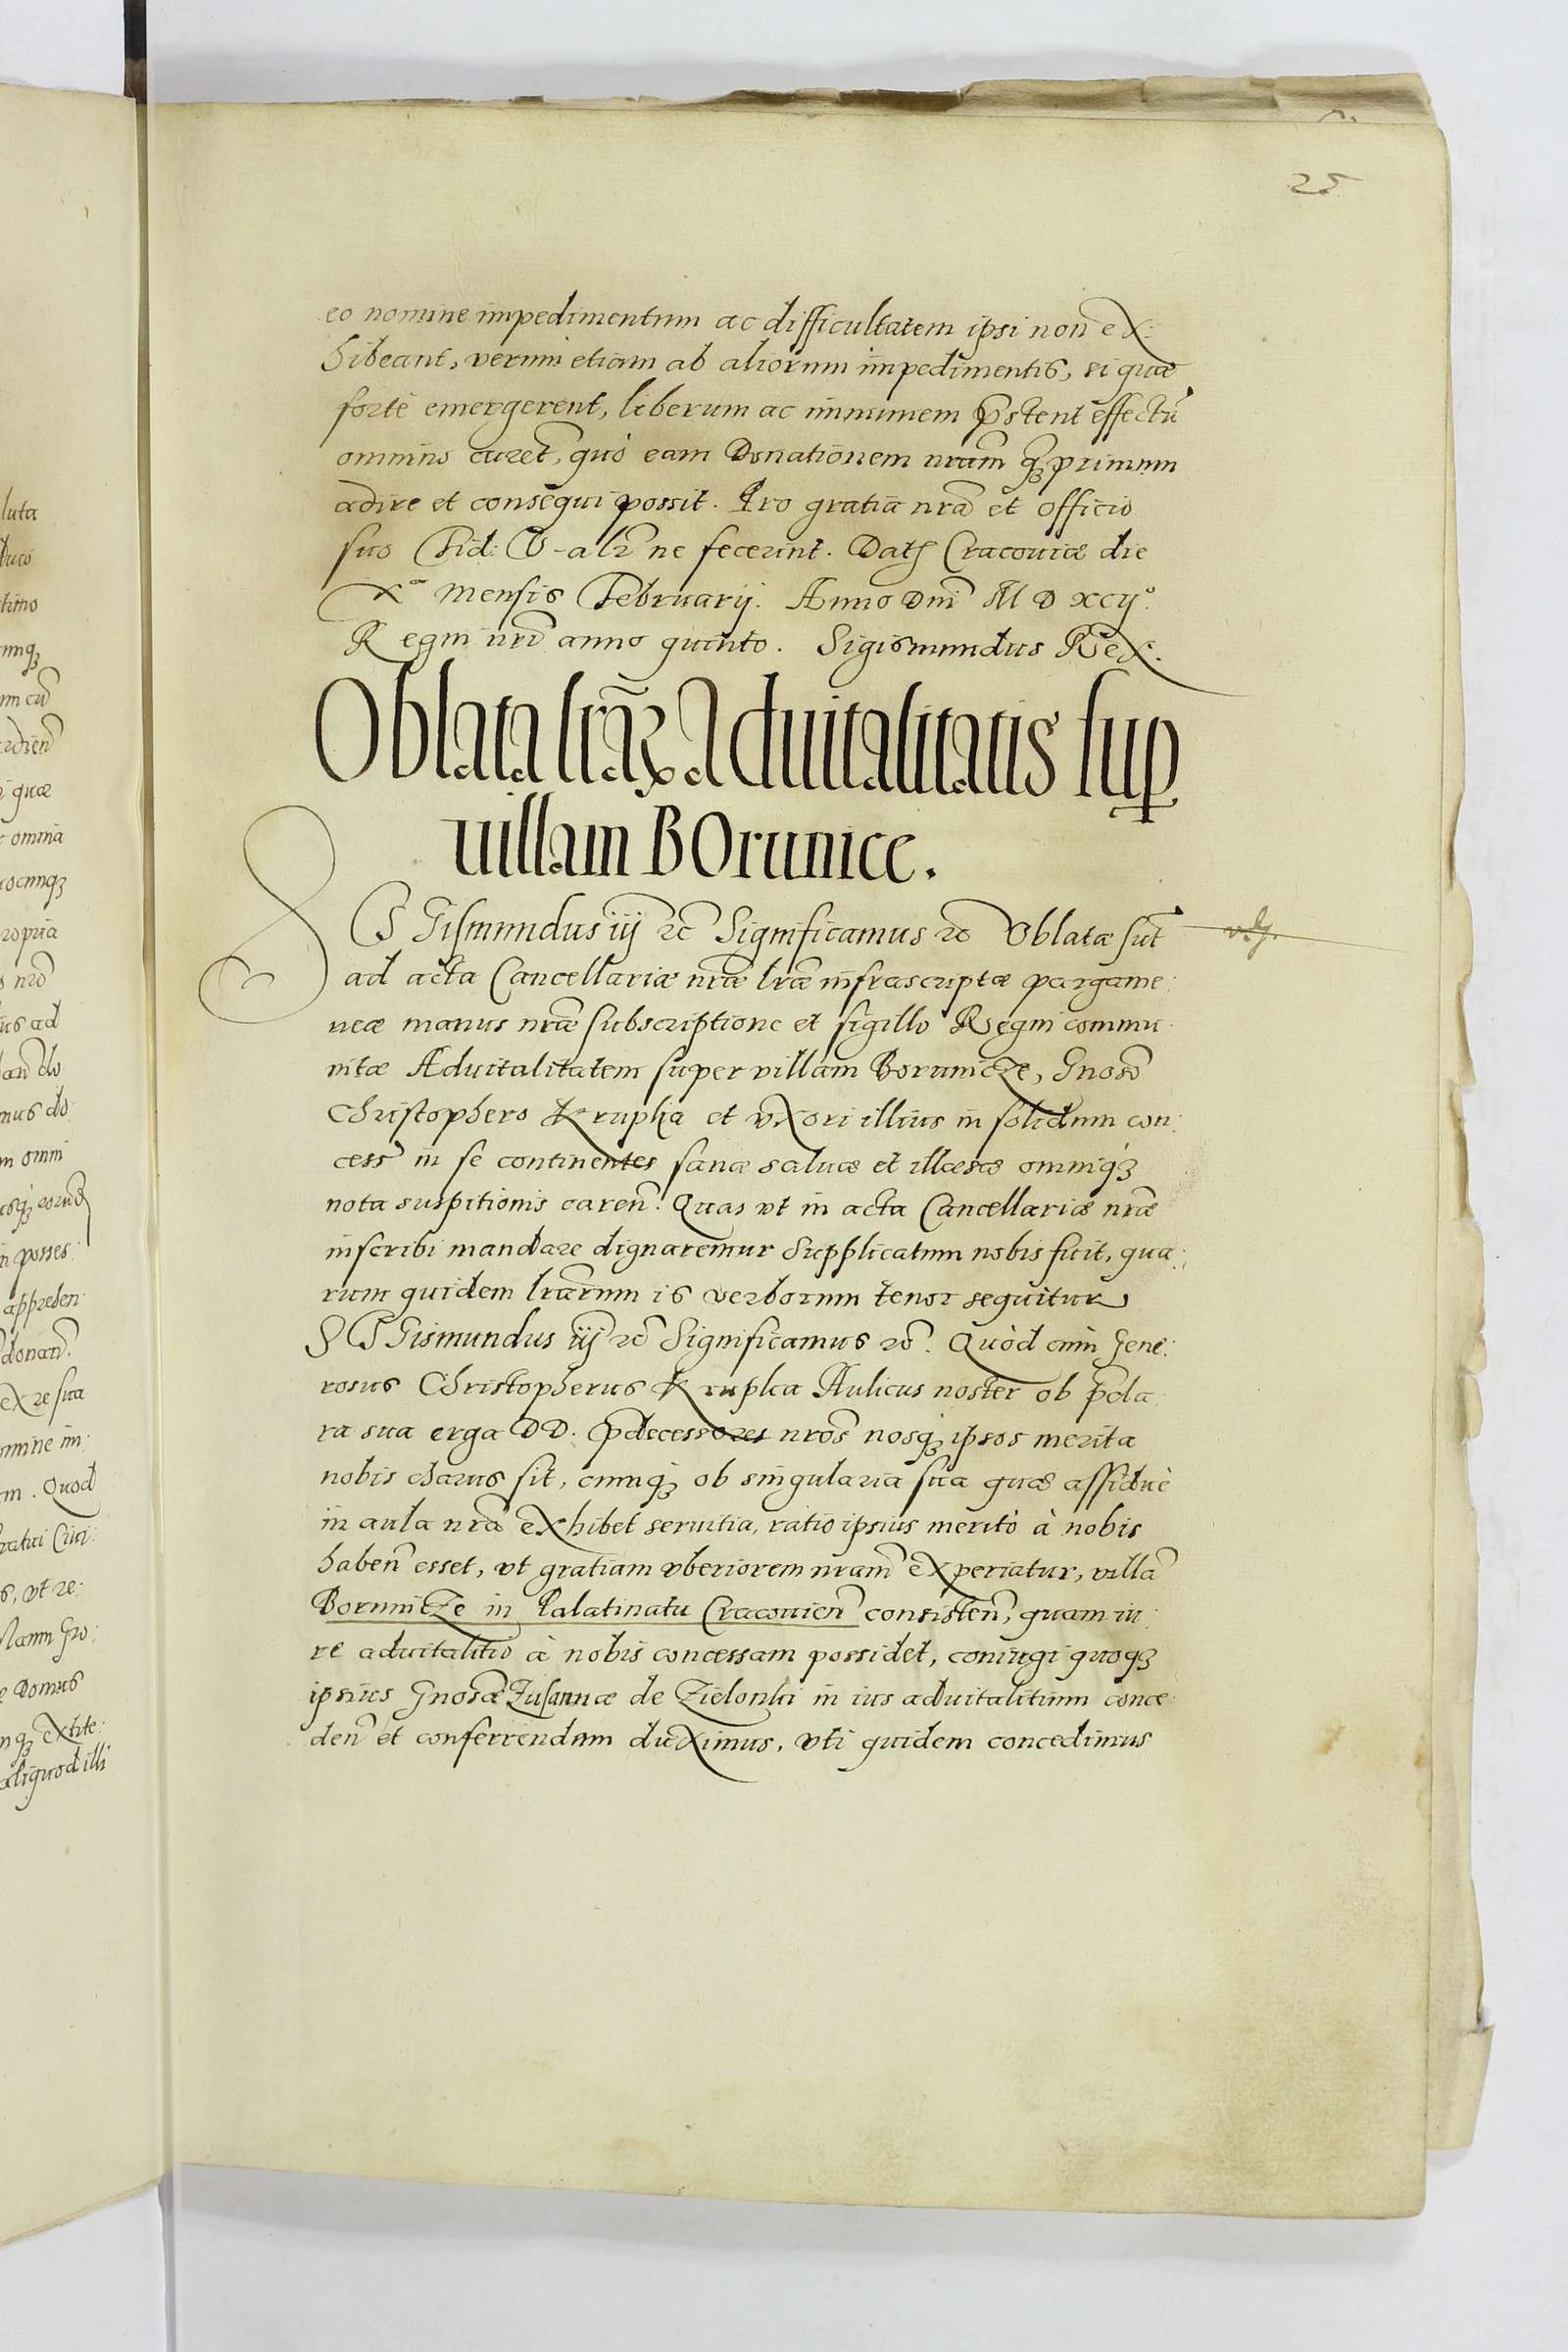 25
eo nomine impedimentum ac difficultatem ipsi non ex:
hibeant, verum etiam ab aliorum impedimentis, si quae
fortè emergerent, liberum ac immunem p̄stent effectū
omnino curet, quò eam Donationem nram̄ qꝫ primum
adire et consequi possit. Pro gratia nrā et officio
suo Fid: V-alr̄ ne fecerint. Datꝭ Cracoviæ die
Xᵃ Mensis Februarij. Anno Dnī M D XCijº.
Regni nrī anno quinto. Sigismundus Rex.
Oblata lrāꝝ Aduitalitatis suꝑ
uillam BOrunice.
SIGismundus iij ꝛc Significamus ꝛc Oblatæ sūt
ad acta Cancellariæ nrāe lrāe infrascriptæ pargame:
neæ manus nrāe subscriptione et sigillo Regni commu:
nitæ Aduitalitatem super villam Borunicze, Gnosō
Christophero Krupka et vxori illius in solidum con:
cess̄ in se continentes sanæ saluæ et illæsæ omniqꝫ
nota suspitionis caren̄. Quas vt in acta Cancellariæ nrāe
inscribi mandare dignaremur Supplicatum nobis fuit, qua:
rum quidem lrārum is verborum tenor sequitur
SIGismundus iij ꝛc Significamus ꝛc. Quòd cum Gene:
rosus Christopherus Krupka Aulicus noster ob p̄cla
ra sua erga DD. p̄decessores nros̄ nosqꝫ ipsos merita
nobis charus sit, cumqꝫ ob singularia sua quæ assiduè
in aula nrā exhibet seruitia, ratio ipsius meritò à nobis
haben̄ esset, vt gratiam vberiorem nram̄ experiatur, villā
Borunitze in Palatinatu Cracouien̄ consisten̄, quam iu:
re aduitalitio à nobis concessam possidet, coniugi quoqꝫ
ipsius Gnosāe Zusannæ de Zielonki in ius aduitalitium conce
den̄ et conferrendam duximus, vti quidem concedimus